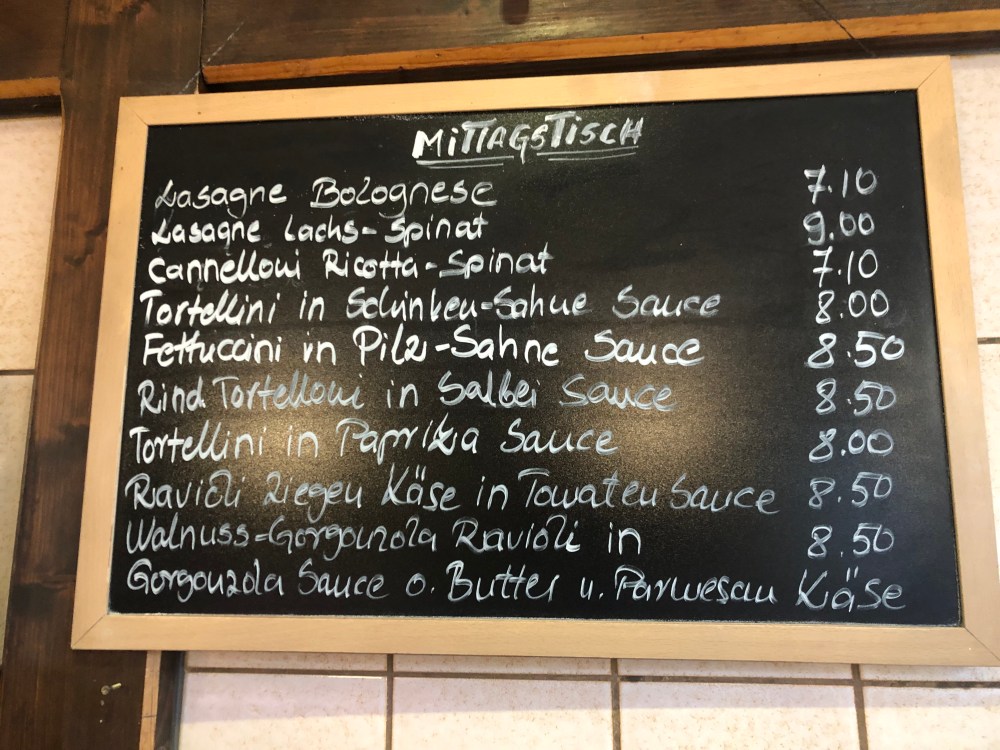 MiTTAGSTiSCH
Lasagne Bolognese 7.10
Lasagne Lachs-Spinat 9.00
Cannelloni Ricotta-Spinat 7.10
Tortellini in Schinken-Sahne Sauce 8.00
Fettuccini in Pilz-Sahne Sauce 8.50
Rind Tortelloni in Salbei Sauce 8.50
Tortellini in Paprika Sauce 8.00
Ravioli Ziegen Käse in Tomaten Sauce 8.50
Walnuss-Gorgonzola Ravioli in 8.50
Gorgonzola Sauce o. Butter u. Parmesan Käse